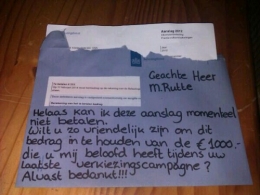 Aanslag 2012
Geachte Heer
M. Rutte
Helaas kan ik deze aanslag momenteel
niet betalen.
Wilt u zo vriendelijk zijn om dit
bedrag in te houden van de € 1000,-
die u mij beloofd heeft tijdens uw
laatste verkiezingscampagne?
Alvast bedankt!!!